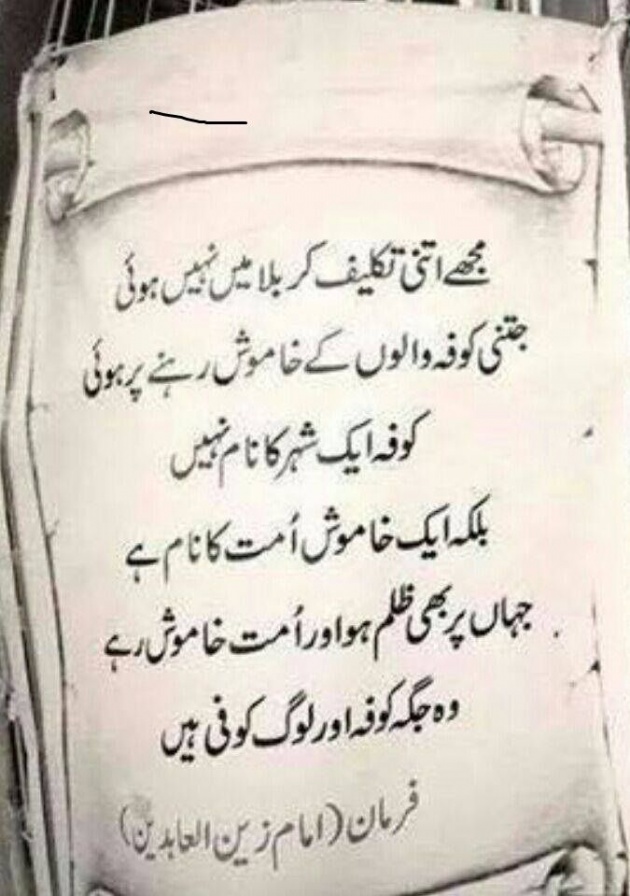 مجھے اتنی تکلیف کربلا میں نہیں ہوئی
جتنی کوفہ والوں کے خاموش رہنے پر ہوئی
کوفہ ایک شہر کا نام نہیں
بلکہ ایک خاموش اُمت کا نام ہے
جہاں پر بھی ظلم ہو اور اُمت خاموش رہے
وہ جگہ کوفہ اور لوگ کوفی ہیں
فرمان (امام زین العابدین)